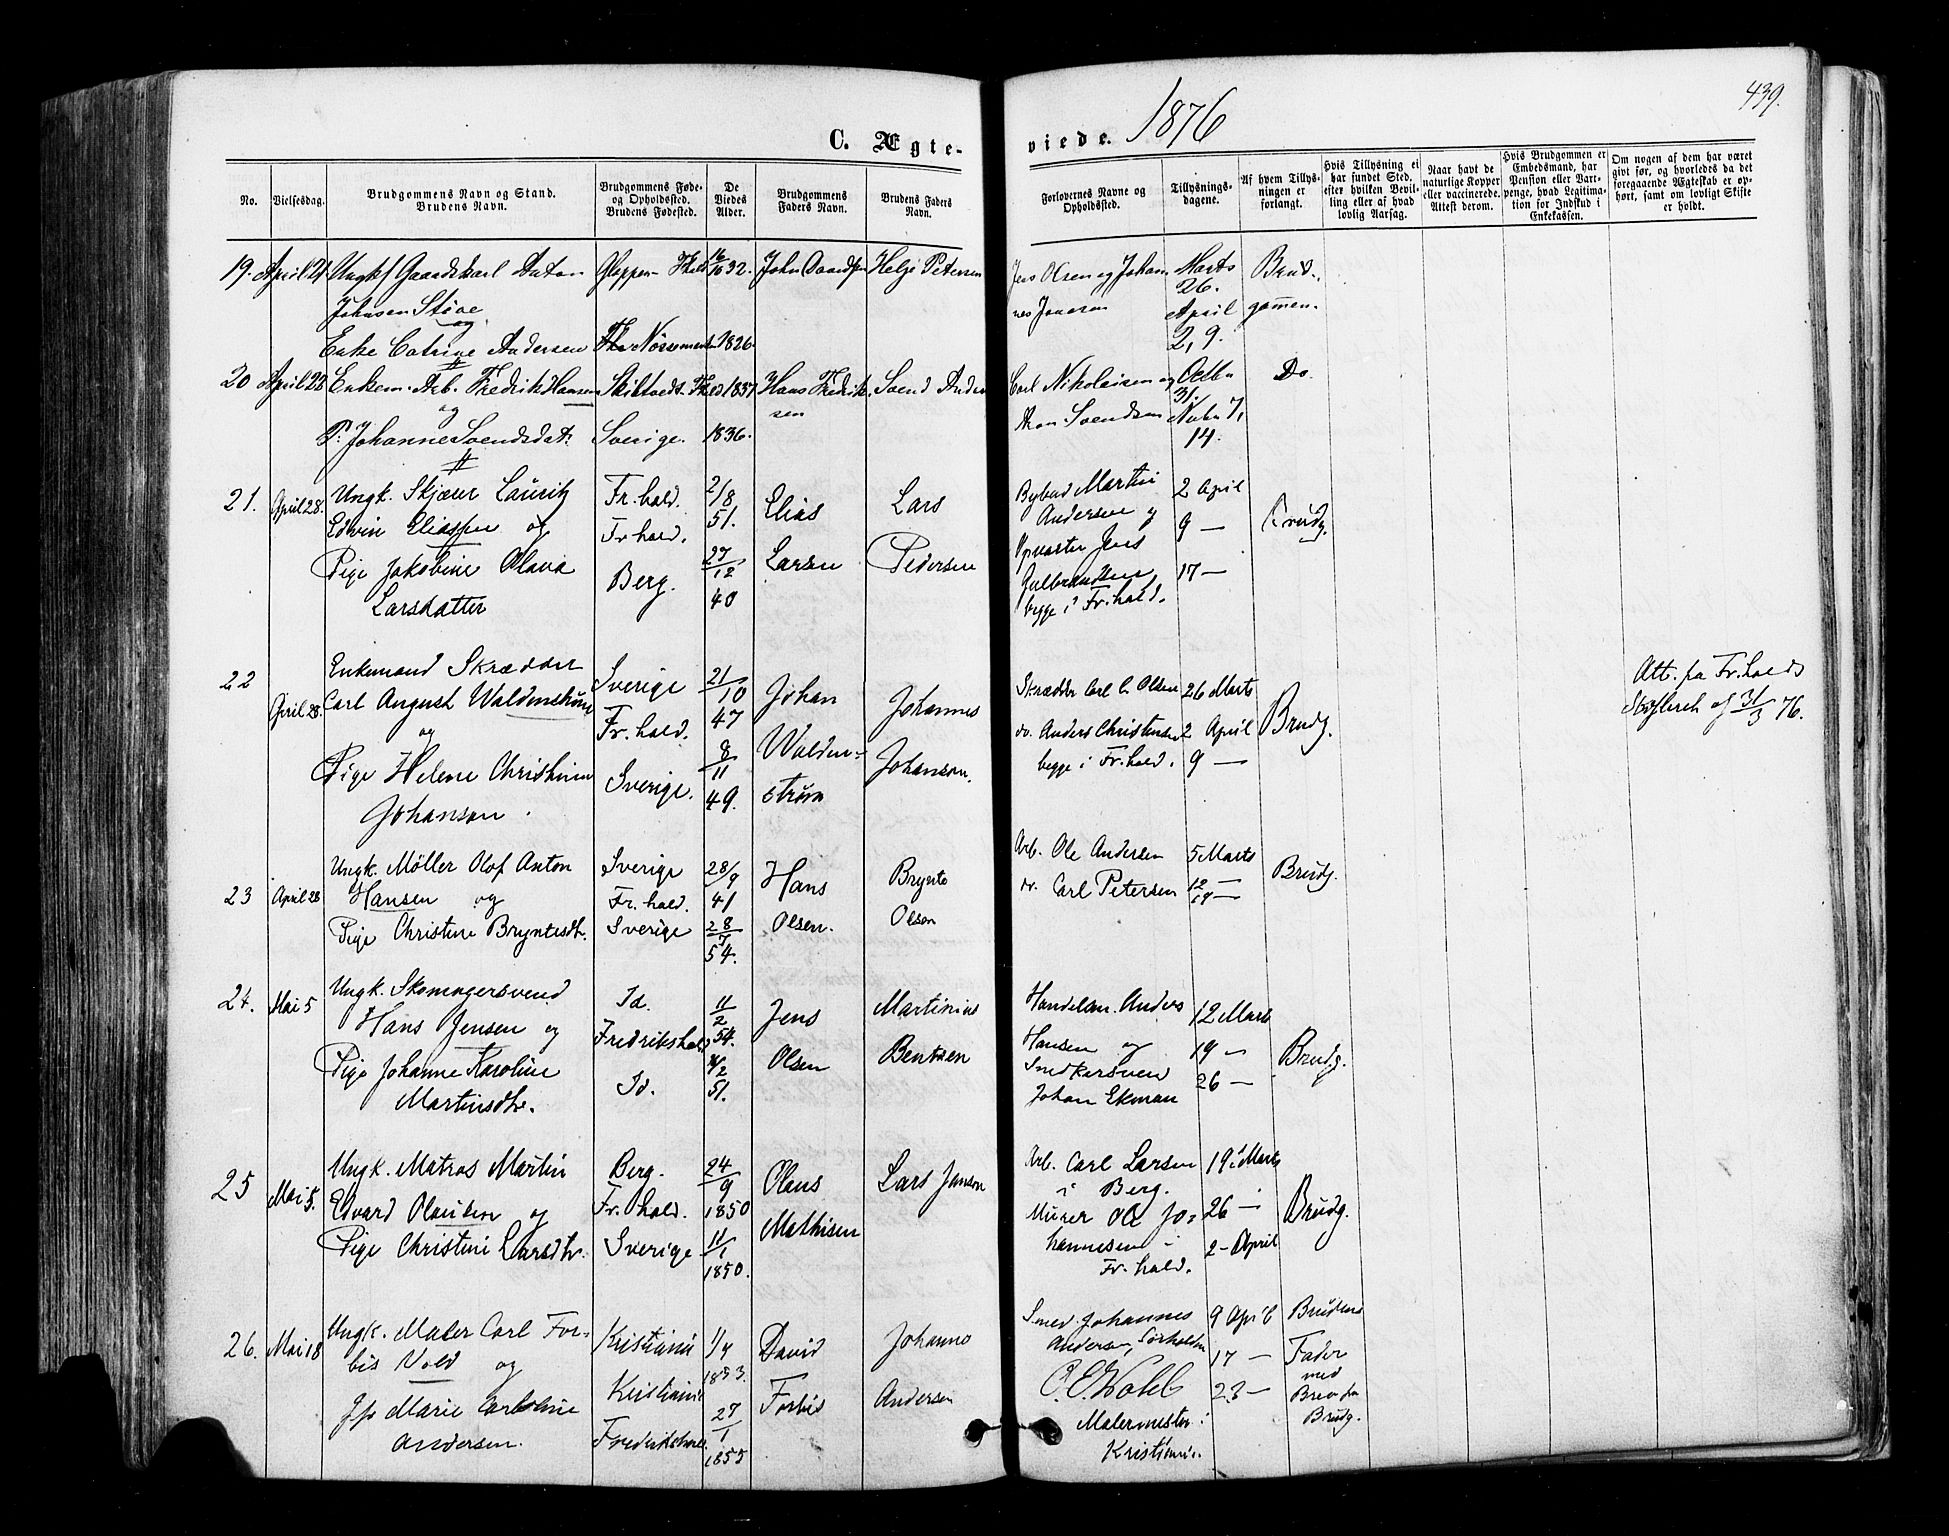 439.
C. Ægte-
viede. 1876
No.
Vielsesdag.
Brudgommens Navn og Stand.
Brudens Navn.
Brudgommens Føde-
og Opholdssted.
Brudens Fødested.
De
Viedes
Alder.
Brudgommens
Faders Navn.
Brudens Faders
Navn.
Forlovernes Navne og
Opholdssted.
Tillysnings-
dagene.
Af hvem Tillys-
ningen er
forlangt.
Hvis Tillysning ei
har fundet Sted,
efter hvilken Bevil-
ling eller af hvad
lovlig Aarsag.
Naar havt de
naturlige Kopper
eller vaccinerede.
Attest derom.
Hvis Brudgommen er
Embedsmand, har
Pension eller Vart-
penge, hvad Legitima-
tion for Indskud i
Enkekassen.
Om nogen af dem har været
givt før, og hvorledes da det
foregaaende Ægteskab er op-
hørt, samt om lovligt Skifte
er holdt.
19. April 21. Ungk. Gaardskarl Anton
Johnsen
og
Enke Catrine Andersen
16/10 32.
1826.
John
Helje Petersen
Jens Olsen og Johan-
nes
Marts
26.
April
2, 9.
Brud-
gommen.
20 April 28 Enkem. Arb. Fredrik Hansen
og
P. Johanne Svendsdatr.
Sverige.
1837
1836.
Hans Fredrik-
sen
Svend
Carl Nikolaisen og
Svendsen
Octbr
31.
Novbr 7,
14.
Do.
21. April 28. Ungk. Skjærer Lauritz
Edvin Eliassen og
Pige Jakobine Olava
Larsdatter
Fr.hald.
Fr.hald.
Berg.
2/8
51.
27/12
40
Elias
Larsen
Lars
Pedersen
Bybud Martin
Andersen og
Opvarter Jens
Gulbrandsen
begge i Fr.hald.
2 April
9 —
17 —
Brudg.
22 April 28. Enkemand Skrædder
Carl August Waldenstrøm
og
Pige Helene Christine
Johanson.
Sverige
Fr.hald.
Sverige.
21/10
47
8/11
49.
Johan
Walden-
strøm
Johannes
Johanson.
Skrædder Carl C. Olsen
do. Anders Christensen
begge i Fr.hald.
26 Marts
2 April
9 —
Brudg.
Att. fra Fr.halds
af 31/3 76.
23 April 28 Ungk. Møller Olof Anton
Hansen og
Pige Christine Bryntesdtr.
Sverige
Fr.hald.
Sverige
28/9
41
28/7
54.
Hans
Olsen.
Brynte
Olson
Arb. Ole Andersen
do. Carl Petersen
5 Marts
12 —
19 —
Brudg.
24. Mai 5 Ungk. Skomagersvend
Hans Jensen og
Pige Johanne Karoline
Martinsdtr.
Id.
Fredrikshald
Id.
11/2
54.
51.
Jens
Olsen
Martinius
Bentsen
Handelsm. Anders
Hansen og
Snedkersvend
Johan Ekman
12 Marts
19 —
26 —
Brudg.
25 Mai 5. Ungk. Matros Martin
Edvard Olausen og
Pige Christine Larsdtr.
Berg.
Fr.hald.
Sverige
24/9
1850
11/1
1850.
Olaus
Mathisen
Lars Janson
Arb. Carl Larsen
i Berg.
Murer Ole Jo-
hannesen i
Fr.hald.
19 Marts
26 —
2 - April
Brudg.
26. Mai 18 Ungk. Maler Carl For-
bis Vold og
Jfr Marie Caroline
Andersen.
Kristiania
Kristiania
Fredrikshald.
1853.
27/1
1855
David
Forbis
Johannes
Andersen
Smed Johannes
Andersen,
Malermester i
Kristiania.
9 April
17 —
23 —
Brudens
Fader
med
Brev fra
Brudg.